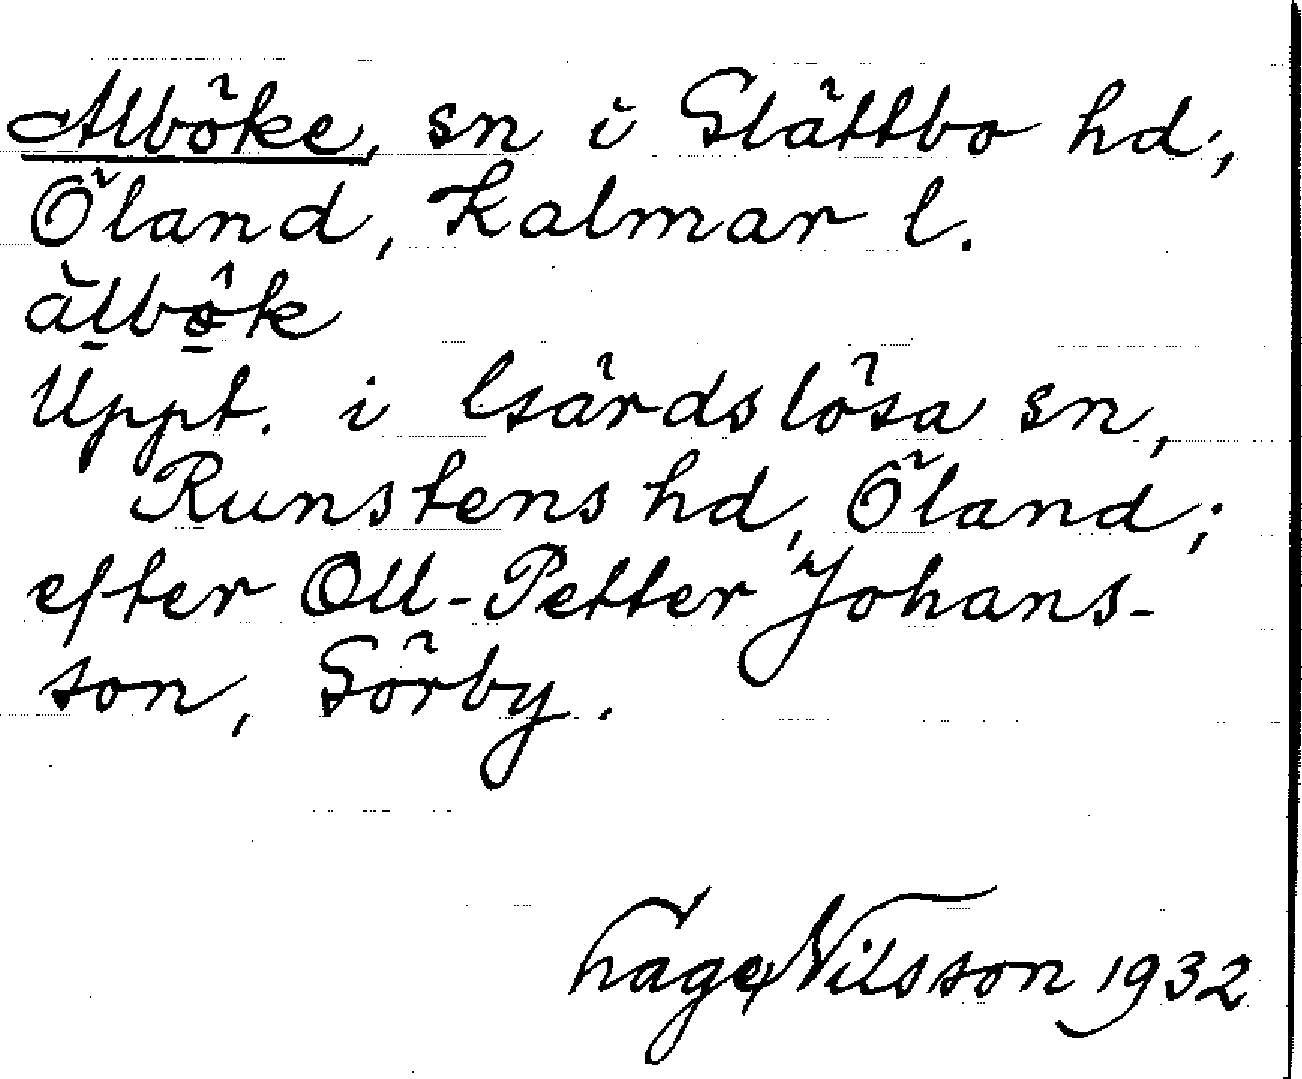 Alböke, sn i Slättbo hd,
Öland, Kalmar l.
àlbö̂k
Uppt. i Gärdslösa sn,
Runstens hd, Öland;
efter Oll-Petter Johans-
son, Sörby.
Hage Nilsson 1932